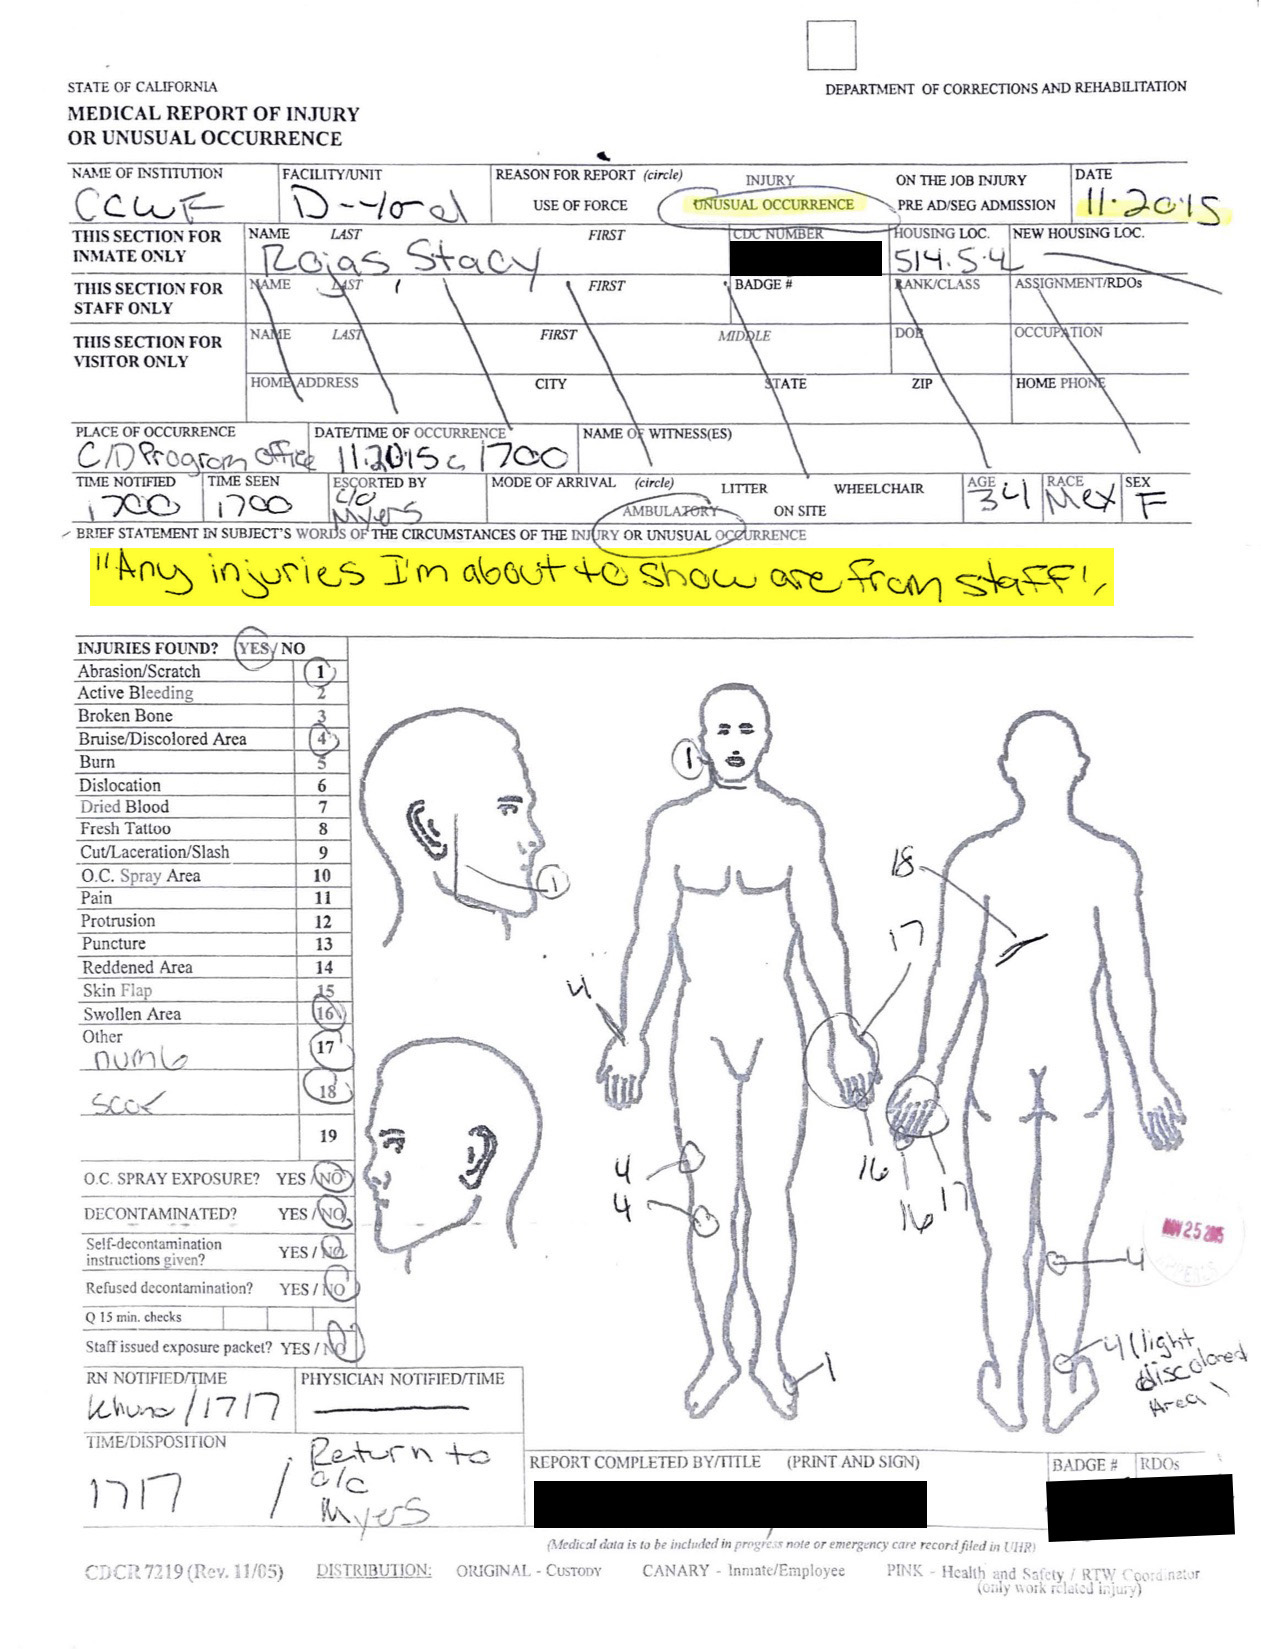 STATE OF CALIFORNIA
DEPARTMENT OF CORRECTIONS AND REHABILITATION
MEDICAL REPORT OF INJURY
OR UNUSUAL OCCURRENCE
NAME OF INSTITUTION
CCWF
FACILITY/UNIT
D-Yard
REASON FOR REPORT (circle)
INJURY
ON THE JOB INJURY
USE OF FORCE
UNUSUAL OCCURRENCE
PRE AD/SEG ADMISSION
DATE
11.2015
THIS SECTION FOR
INMATE ONLY
NAME LAST FIRST
Rojas Stacy
CDC NUMBER
HOUSING LOC.
514.5.4L
NEW HOUSING LOC.
THIS SECTION FOR
STAFF ONLY
NAME LAST FIRST
BADGE #
RANK/CLASS
ASSIGNMENT/RDOs
THIS SECTION FOR
VISITOR ONLY
NAME LAST FIRST MIDDLE
DOB
OCCUPATION
HOME ADDRESS CITY STATE ZIP
HOME PHONE
PLACE OF OCCURRENCE
C/D Program office
DATE/TIME OF OCCURRENCE
11.2015 @ 1700
NAME OF WITNESS(ES)
TIME NOTIFIED
1700
TIME SEEN
1700
ESCORTED BY
c/o
Myers
MODE OF ARRIVAL (circle)
LITTER WHEELCHAIR
AMBULATORY ON SITE
AGE
34
RACE
Mex
SEX
F
BRIEF STATEMENT IN SUBJECT'S WORDS OF THE CIRCUMSTANCES OF THE INJURY OR UNUSUAL OCCURRENCE
"Any injuries I'm about to show are from staff",
INJURIES FOUND? YES / NO
Abrasion/Scratch 1
Active Bleeding 2
Broken Bone 3
Bruise/Discolored Area 4
Burn 5
Dislocation 6
Dried Blood 7
Fresh Tattoo 8
Cut/Laceration/Slash 9
O.C. Spray Area 10
Pain 11
Protrusion 12
Puncture 13
Reddened Area 14
Skin Flap 15
Swollen Area 16
Other 17
numb
scar 18
19
O.C. SPRAY EXPOSURE? YES / NO
DECONTAMINATED? YES / NO
Self-decontamination
instructions given? YES / NO
Refused decontamination? YES / NO
Q 15 min. checks
Staff issued exposure packet? YES / NO
1
1
18
17
4
4
4
16
16
17
4
NOV 25 2015
APPEALS
4 (light
discolored
Area)
1
RN NOTIFIED/TIME
/1717
PHYSICIAN NOTIFIED/TIME
TIME/DISPOSITION
1717 / Return to
c/c
Myers
REPORT COMPLETED BY/TITLE (PRINT AND SIGN)
BADGE #
RDOs
(Medical data is to be included in progress note or emergency care record filed in UHR)
CDCR 7219 (Rev. 11/05)
DISTRIBUTION: ORIGINAL - CUSTODY CANARY - Inmate/Employee PINK - Health and Safety / RTW Coordinator
(only work related injury)